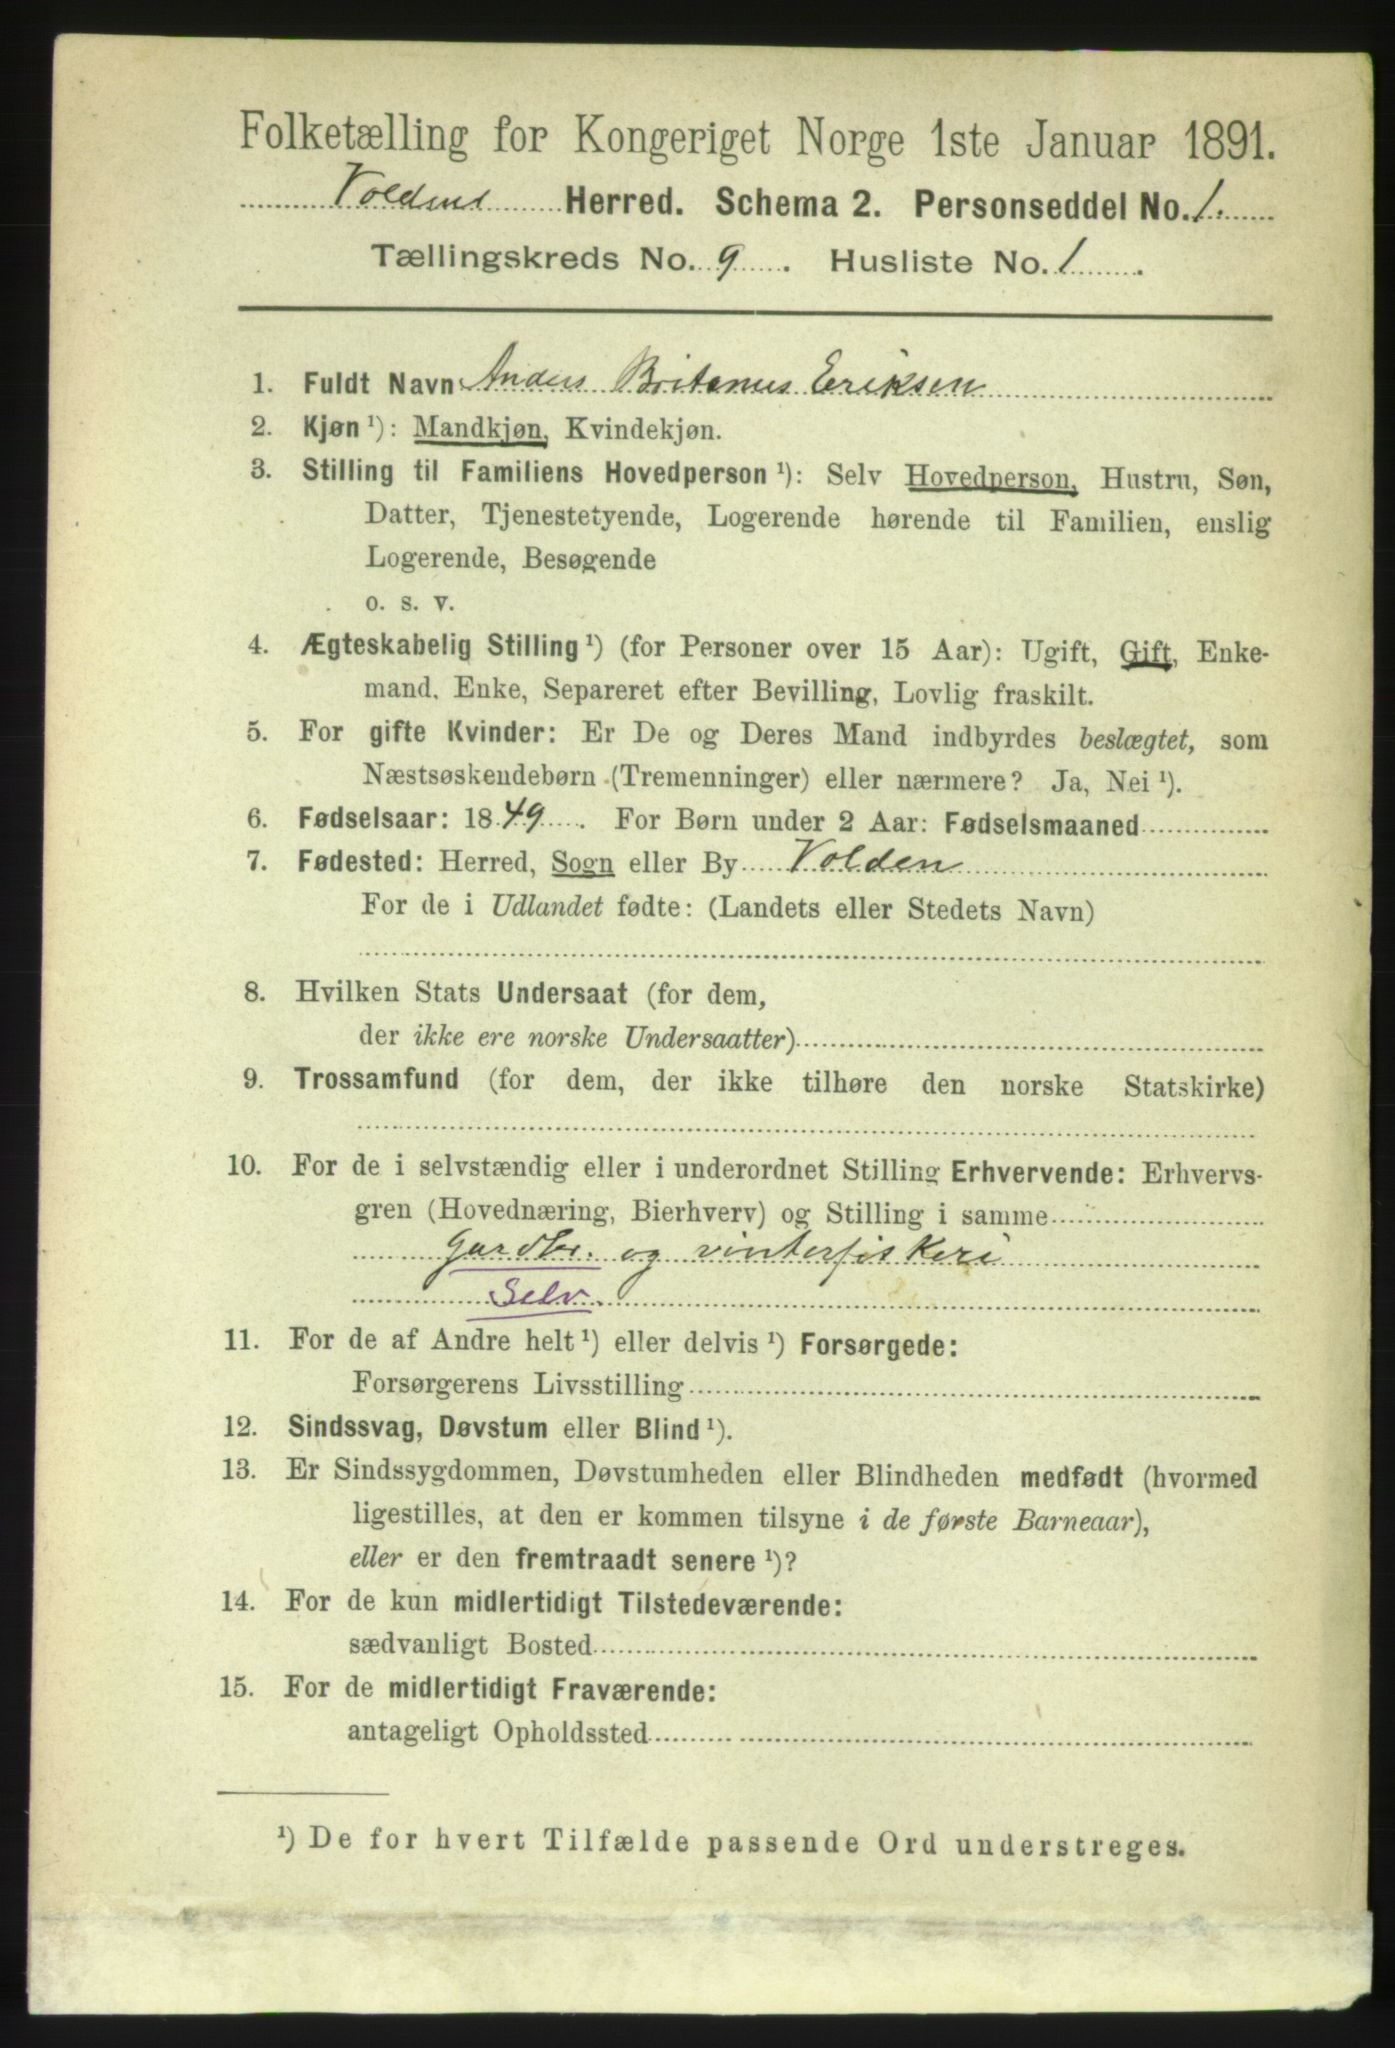 Folketælling for Kongeriget Norge 1ste Januar 1891.
Voldens Herred. Schema 2. Personseddel No. 1.
Tællingskreds No. 9. Husliste No. 1.
1. Fuldt Navn Anders Britanus Eriksen
2. Kjøn ¹): Mandkjøn, Kvindekjøn.
3. Stilling til Familiens Hovedperson ¹): Selv Hovedperson, Hustru, Søn,
Datter, Tjenestetyende, Logerende hørende til Familien, enslig
Logerende, Besøgende
o. s. v.
4. Ægteskabelig Stilling ¹) (for Personer over 15 Aar): Ugift, Gift, Enke-
mand, Enke, Separeret efter Bevilling, Lovlig fraskilt.
5. For gifte Kvinder: Er De og Deres Mand indbyrdes beslægtet, som
Næstsøskendebørn (Tremenninger) eller nærmere? Ja, Nei ¹).
6. Fødselsaar: 1849. For Børn under 2 Aar: Fødselsmaaned
7. Fødested: Herred, Sogn eller By Volden
For de i Udlandet fødte: (Landets eller Stedets Navn)
8. Hvilken Stats Undersaat (for dem,
der ikke ere norske Undersaatter)
9. Trossamfund (for dem, der ikke tilhøre den norske Statskirke)
10. For de i selvstændig eller i underordnet Stilling Erhvervende: Erhvervs-
gren (Hovednæring, Bierhverv) og Stilling i samme
Gardbr. og vinterfiskeri
Selv.
11. For de af Andre helt ¹) eller delvis ¹) Forsørgede:
Forsørgerens Livsstilling
12. Sindssvag, Døvstum eller Blind ¹).
13. Er Sindssygdommen, Døvstumheden eller Blindheden medfødt (hvormed
ligestilles, at den er kommen tilsyne i de første Barneaar),
eller er den fremtraadt senere ¹)?
14. For de kun midlertidigt Tilstedeværende:
sædvanligt Bosted
15. For de midlertidigt Fraværende:
antageligt Opholdssted
¹) De for hvert Tilfælde passende Ord understreges.